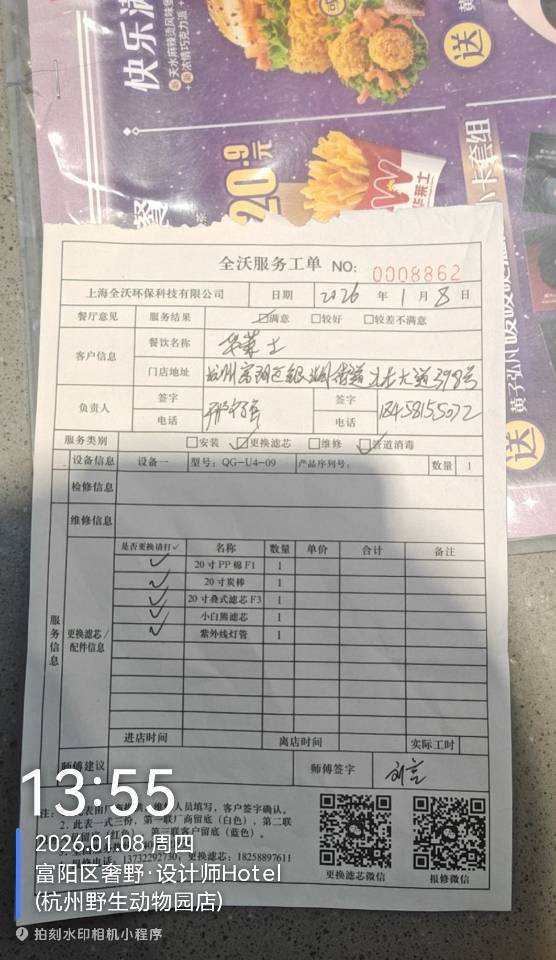 快乐满
天水麻辣烫风味堡
+浓情巧克力派
送
20.9元
华莱士
小卡套组
黄子弘凡
送
全沃服务工单 NO: 0008862
上海全沃环保科技有限公司 日期 2026 年 1 月 8 日
餐厅意见 服务结果 ☑满意 □较好 □较差不满意
客户信息 餐饮名称 华莱士
门店地址 杭州富阳区银湖街道九龙大道398号
负责人 签字 签字
电话 电话 18458155072
服务类别 □安装 ☑更换滤芯 □维修 ☑管道消毒
设备信息 设备一 型号: QG-U4-09 产品序列号: 数量 1
检修信息
维修信息
服务信息
更换滤芯/配件信息
是否更换请打✓ 名称 数量 单价 合计 备注
✓ 20寸PP棉F1 1
✓ 20寸炭棒 1
✓ 20寸叠式滤芯F3 1
✓ 小白熊滤芯 1
✓ 紫外线灯管 1
进店时间 离店时间 实际工时
师傅建议 师傅签字
注:
人员填写，客户签字确认。
2. 此表一式三份，第一联厂商留底（白色），第二联
（红色），第三联客户留底（蓝色）。
报修电话: 13732292730; 更换滤芯: 18258897611
更换滤芯微信 报修微信
13:55
2026.01.08 周四
富阳区奢野·设计师Hotel
(杭州野生动物园店)
拍刻水印相机小程序